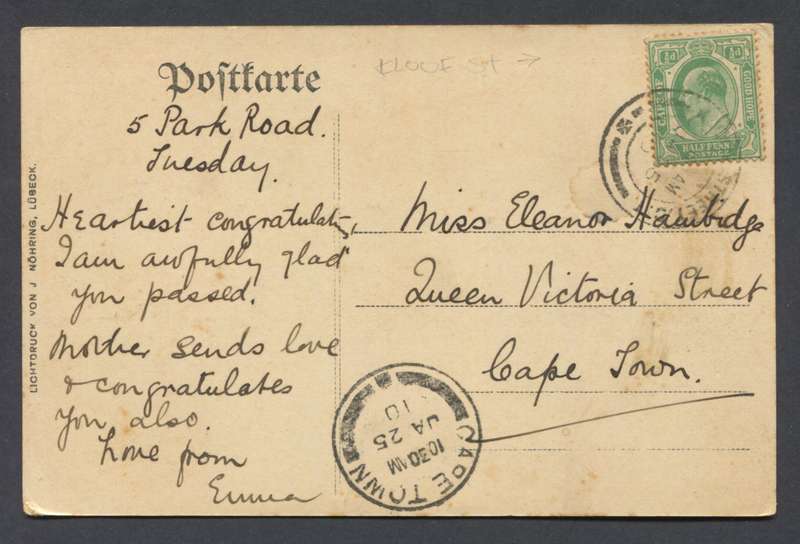 Postkarte
KLOOF St →
½d ½d
CAPE OF GOOD HOPE
HALFPENNY
POSTAGE
5 Park Road.
Tuesday.
Heartiest congratulatns,
I am awfully glad
you passed.
Mother sends love
& congratulates
you also.
Love from
Emma
Miss Eleanor Hambidge
Queen Victoria Street
Cape Town.
STREET
AM
CAPE TOWN
10 30 AM
JA 25
10
LICHTDRUCK VON J NÖHRING, LÜBECK.